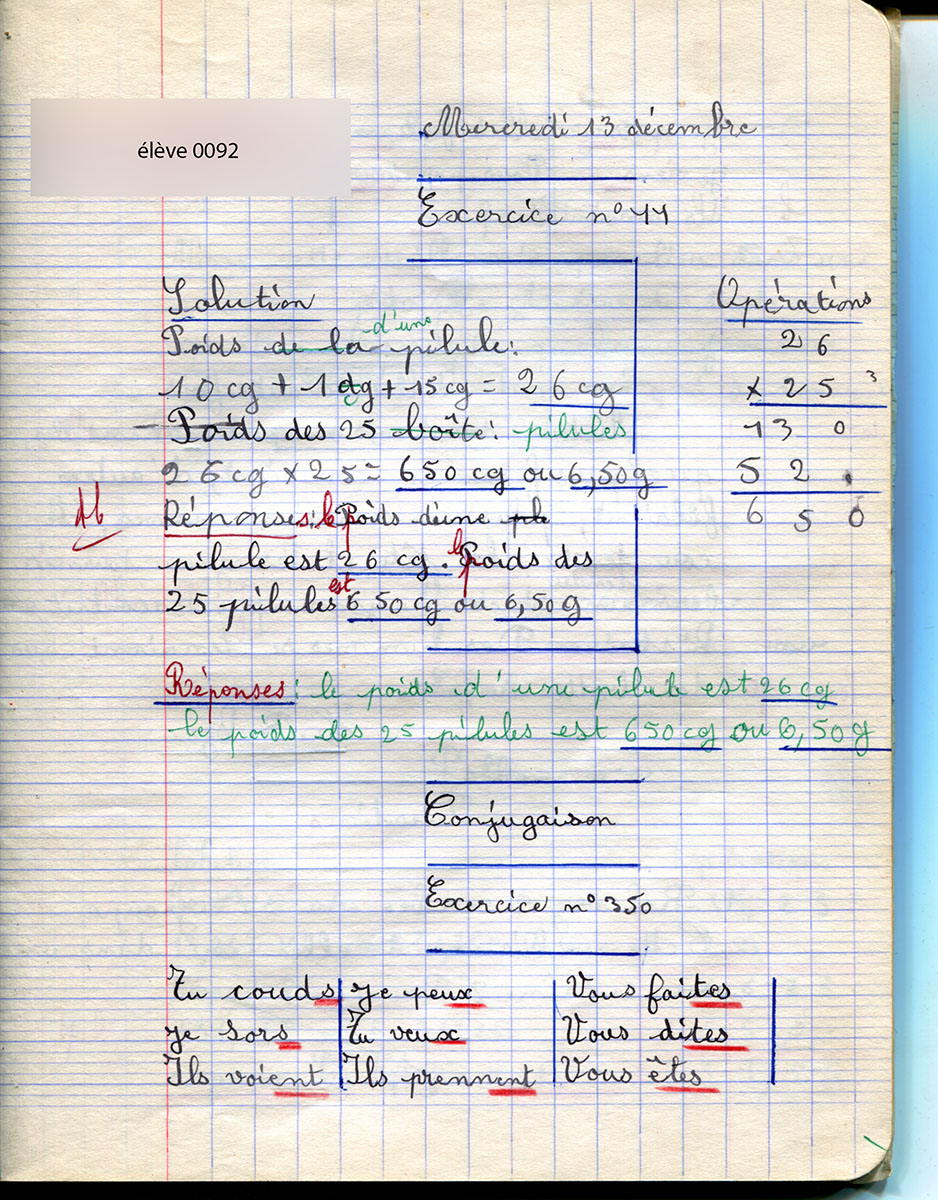 élève 0092
Mercredi 13 décembre
Exercice n° 44
Solution
Opérations
d'une
Poids de la pilule:
26
10 cg + 1 cg + 15 cg = 26 cg
× 25 3
Poids des 25 boîte: pilules
13 0
26 cg × 25 = 650 cg ou 6,50g
5 2 .
Réponses: le Poids d'une
6 5 0
pilule est 26 cg. le Poids des
25 pilules est 650 cg ou 6,50g
Réponses: le poids d'une pilule est 26 cg
le poids des 25 pilules est 650 cg ou 6,50g
Conjugaison
Exercice n° 350
Tu couds Je peux Vous faites
Je sors Tu veux Vous dites
Ils voient Ils prennent Vous êtes